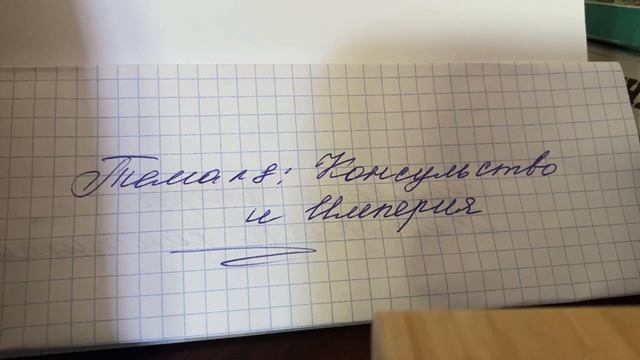 Тема № 8: Консульство
и Империя